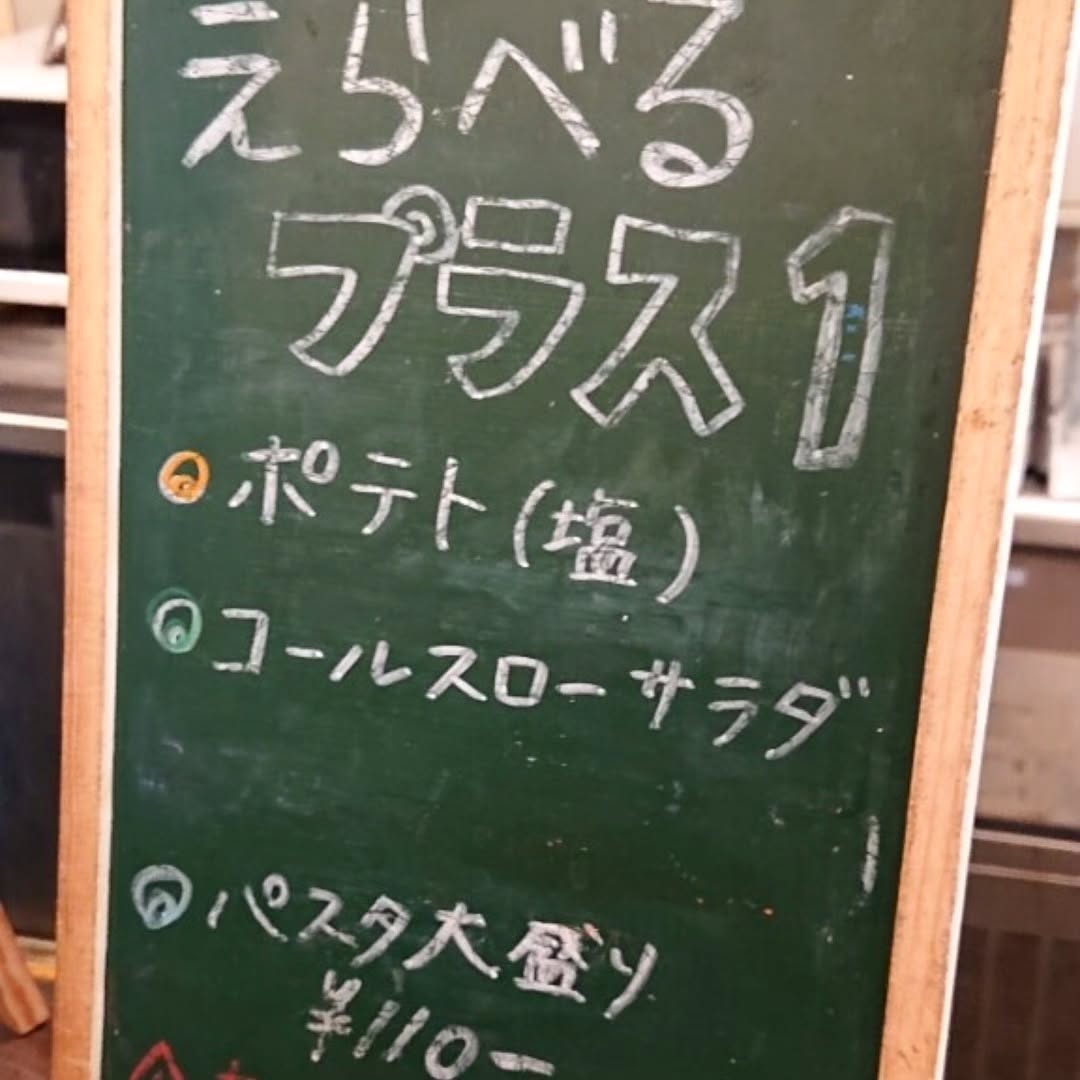 えらべる
プラス1
ポテト(塩)
コールスローサラダ
パスタ大盛り
¥110ー